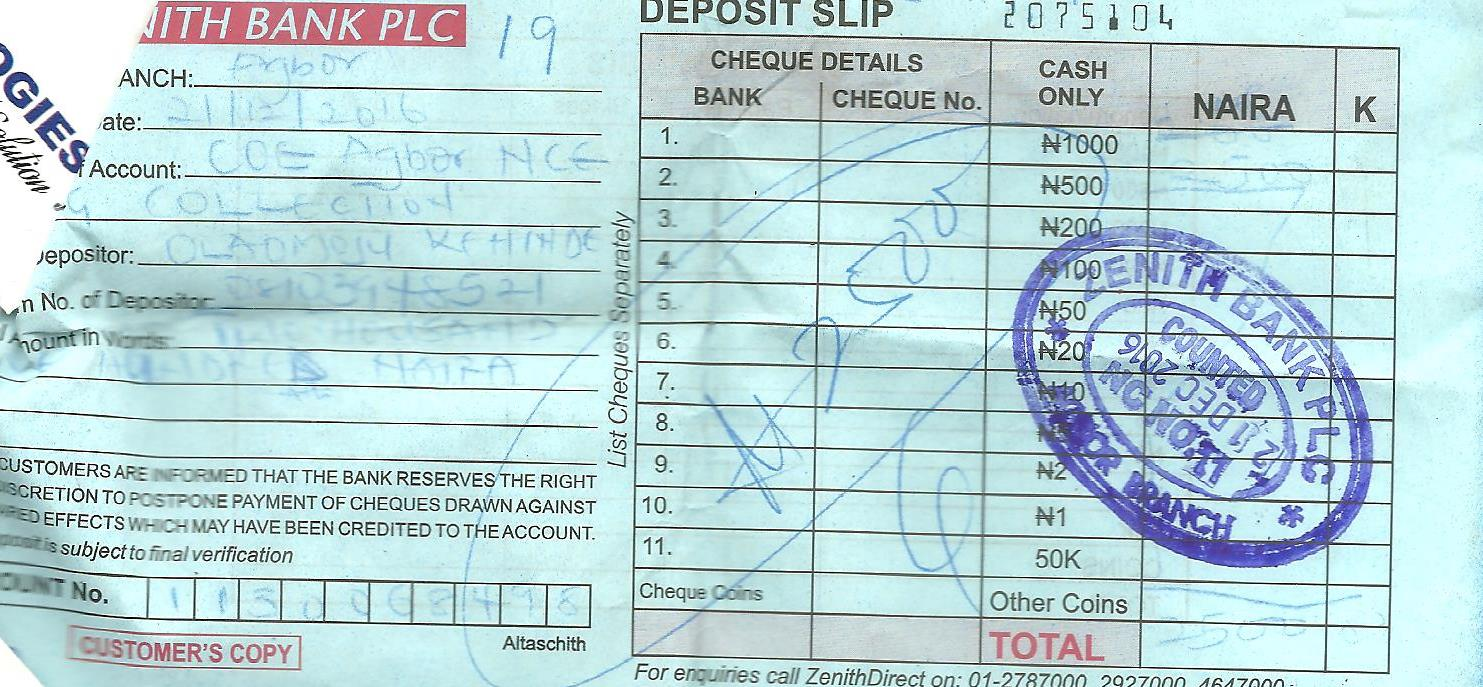 NITH BANK PLC
19
DEPOSIT SLIP
2075104
OGIES
Solution
ANCH: Agbor
ate: 21/12/2016
Account: COE Agbor NCE
COLLECTION
epositor: KEHINDE
n No. of Depositor:
mount in Words:
HUNDRED NAIRA
CUSTOMERS ARE INFORMED THAT THE BANK RESERVES THE RIGHT
ISCRETION TO POSTPONE PAYMENT OF CHEQUES DRAWN AGAINST
EFFECTS WHICH MAY HAVE BEEN CREDITED TO THE ACCOUNT.
posit is subject to final verification
OUNT No. 1130068498
CUSTOMER'S COPY
Altaschith
List Cheques Separately
CHEQUE DETAILS
BANK CHEQUE No. CASH ONLY NAIRA K
1. ₦1000
2. ₦500
3. ₦200
4. ₦100
5. ₦50
6. ₦20
7. ₦10
8. ₦5
9. ₦2
10. ₦1
11. 50K
Cheque Coins Other Coins
TOTAL
₦2500
ZENITH BANK PLC
COUNTED
21 DEC 2016
BRANCH
For enquiries call ZenithDirect on: 01-2787000, 2927000, 4647000